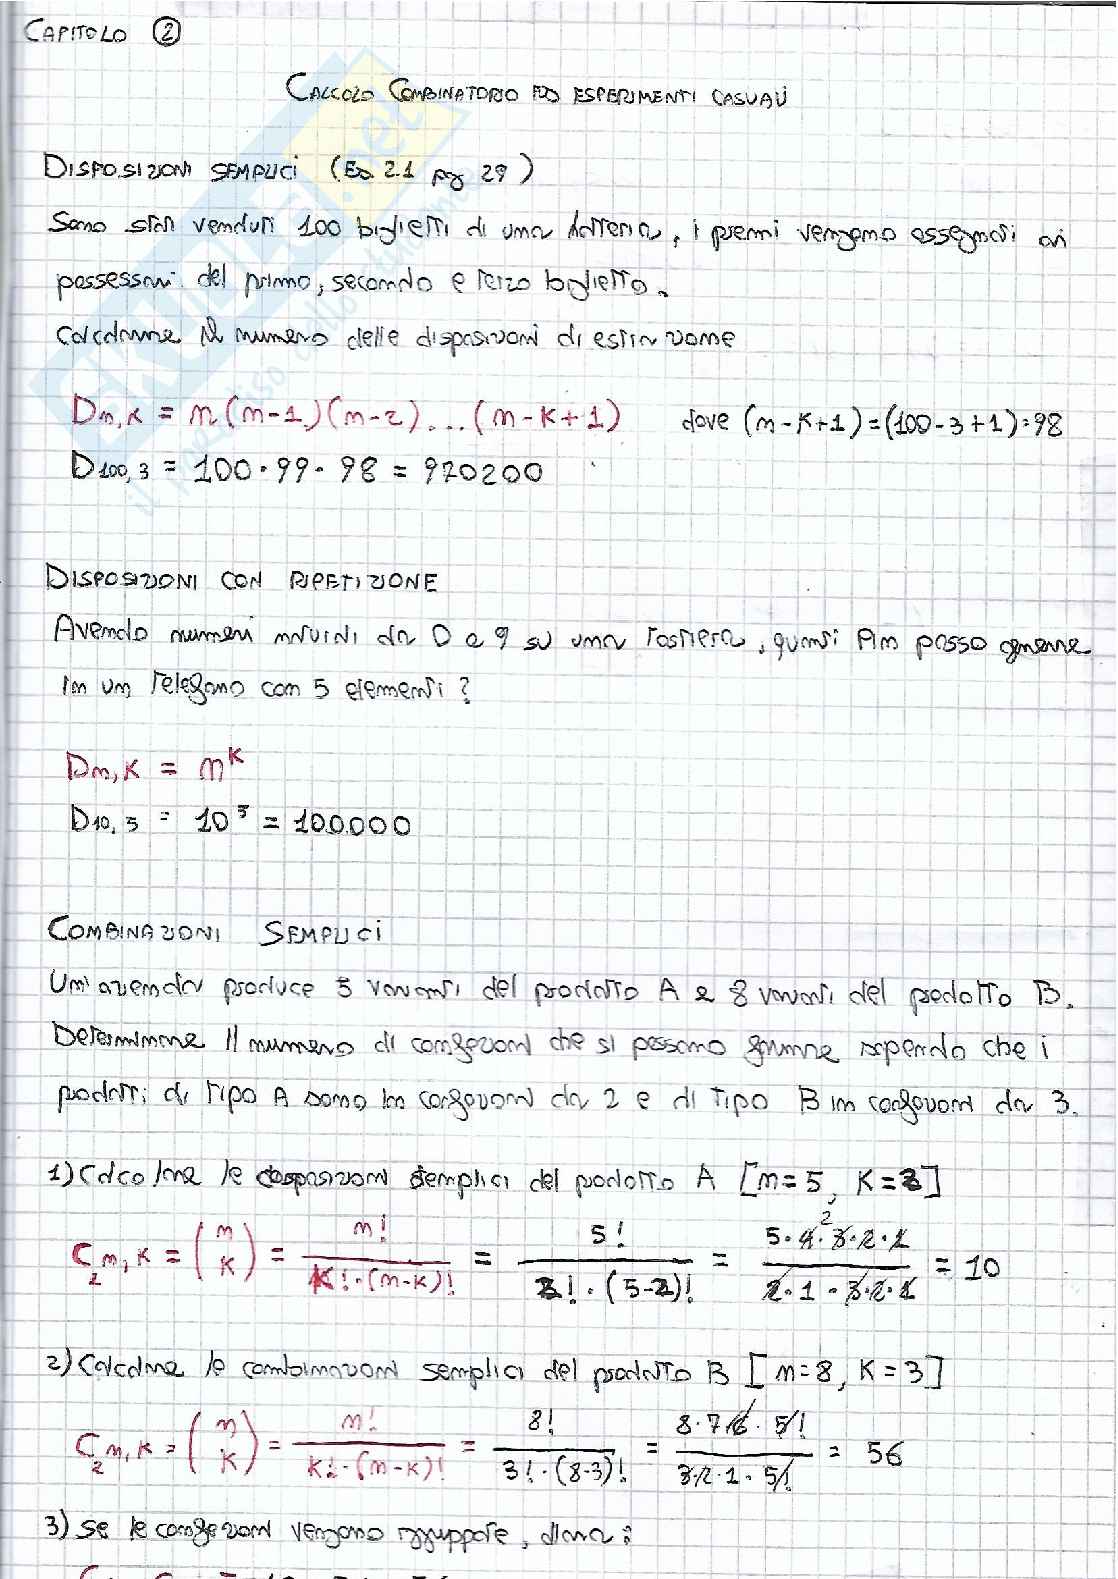 CAPITOLO 2
CALCOLO COMBINATORIO ED ESPERIMENTI CASUALI
DISPOSIZIONI SEMPLICI (Es 2.1 pg 29)
Sono stati venduti 100 biglietti di una lotteria, i premi vengono assegnati ai
possessori del primo, secondo e terzo biglietto.
Calcolarne il numero delle disposizioni di estrazione
Dn,k = n(n-1)(n-2)...(n-k+1) dove (n-k+1)=(100-3+1)=98
D100,3 = 100·99·98 = 970200
DISPOSIZIONI CON RIPETIZIONE
Avendo numeri naturali da 0 a 9 su una tastiera, quanti Pin posso generare
in un telefono con 5 elementi?
Dn,k = n^k
D10,5 = 10^5 = 100.000
COMBINAZIONI SEMPLICI
Un'azienda produce 5 varianti del prodotto A e 8 varianti del prodotto B.
Determinare il numero di confezioni che si possono fornire sapendo che i
prodotti di tipo A sono in confezioni da 2 e di tipo B in confezioni da 3.
1) Calcolare le disposizioni semplici del prodotto A [n=5, K=2]
Cn,k = (n k) = n! / k!·(n-k)! = 5! / 2!·(5-2)! = 5·4·3·2·1 / 2·1·3·2·1 = 10
2) Calcolare le combinazioni semplici del prodotto B [n=8, K=3]
Cn,k = (n k) = n! / k!·(n-k)! = 8! / 3!·(8-3)! = 8·7·6·5! / 3·2·1·5! = 56
3) Se le confezioni vengono raggruppate, allora: